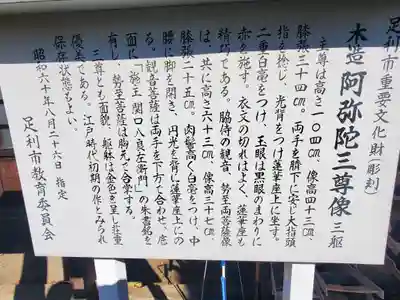 足利市重要文化財(彫刻)
木造 阿弥陀三尊像 三躯
主尊は高さ一〇四㎝、像高四十三㎝、
膝張三十四㎝。両手を膝下に安じ大指頭
指を捻じ、光背をつけ蓮華座上に坐す。
二重白毫をつけ、玉眼は黒眼のまわりに
赤を施す。衣文の切れはよく、蓮華座も
精巧である。脇侍の観音、勢至両菩薩像
は、共に高さ六十三㎝、像高三十七㎝、
膝張二十五㎝。肉髻高く白毫をつけ、中
腰に脚を開き、円光を背に蓮華座上にの
る。観音菩薩は両手を下方で合わせ、底
面に「施主 関口八良左衛門」の朱書銘を
有し、勢至菩薩は胸元で合掌する。
三尊とも面貌、躯躰は金色を呈し荘重
優美である。江戸時代初期の作とみられ
保存状態もよい。
昭和六十年八月二十六日 指定
足利市教育委員会